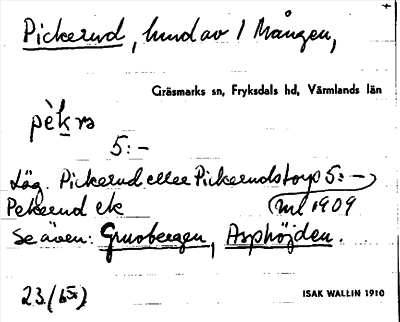 Pickerud, hmd av l Mången,
Gräsmarks sn, Fryksdals hd, Värmlands län
pèkrə
5:-
Läg. Pickerud eller Pickerudstorp 5:-
Pekerud ek
ml 1909
Se även: Grusbergen, Asphöjden.
23.
ISAK WALLIN 1910